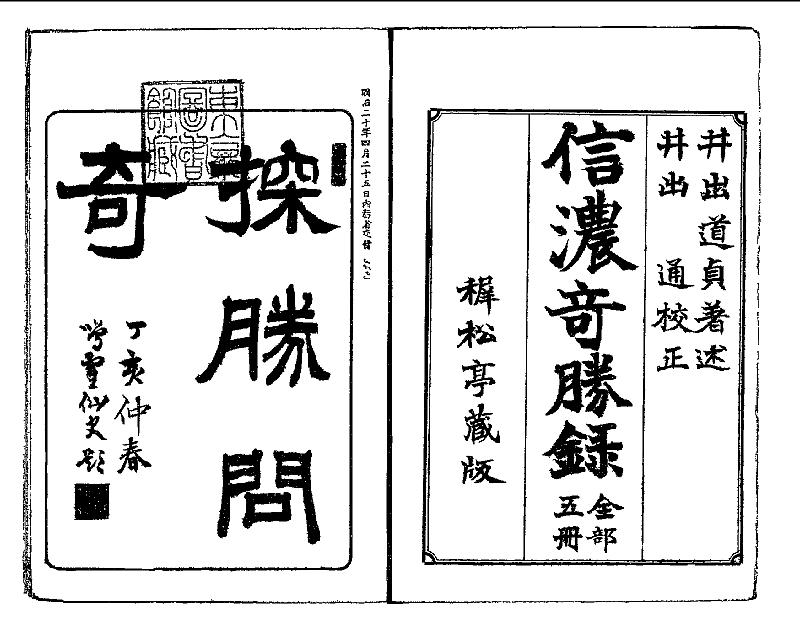 井出道貞著述
井出 通校正
信濃竒勝録
全部
五冊
穉松亭藏版
明治二十年四月二十五日内務省交付
東京
圖書
館藏
探勝問
奇
丁亥仲春